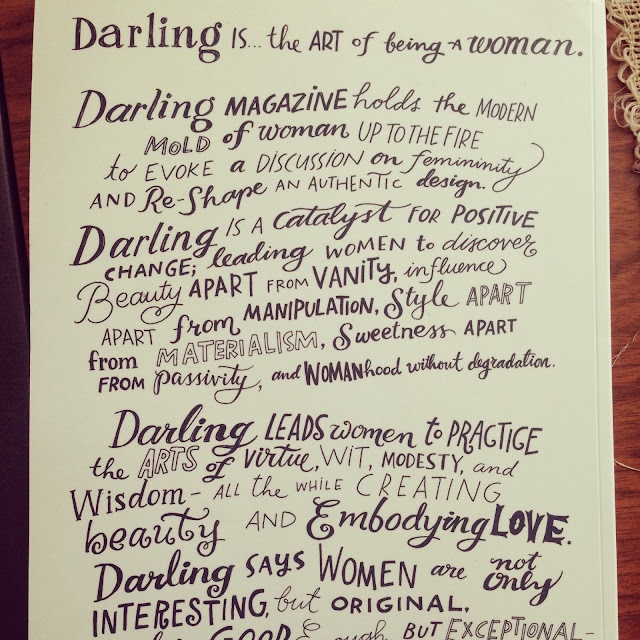 Darling IS... the ART of being A woman.
Darling MAGAZINE holds the MODERN
MOLD of woman UP TO THE FIRE
to EVOKE a DISCUSSION on femininity
AND Re-Shape AN AUTHENTIC design.
Darling IS A catalyst FOR POSITIVE
CHANGE; leading WOMEN to discover
Beauty APART FROM VANITY, influence
APART from MANIPULATION, Style APART
from MATERIALISM, Sweetness APART
FROM passivity, and WOMANhood without degradation.
Darling LEADS women to PRACTICE
the ARTS of virtue, WIT, MODESTY, and
Wisdom - ALL the WHILE CREATING
beauty AND Embodying LOVE.
Darling SAYS WOMEN are not only
INTERESTING, but ORIGINAL.
GOOD Enough BUT EXCEPTIONAL-